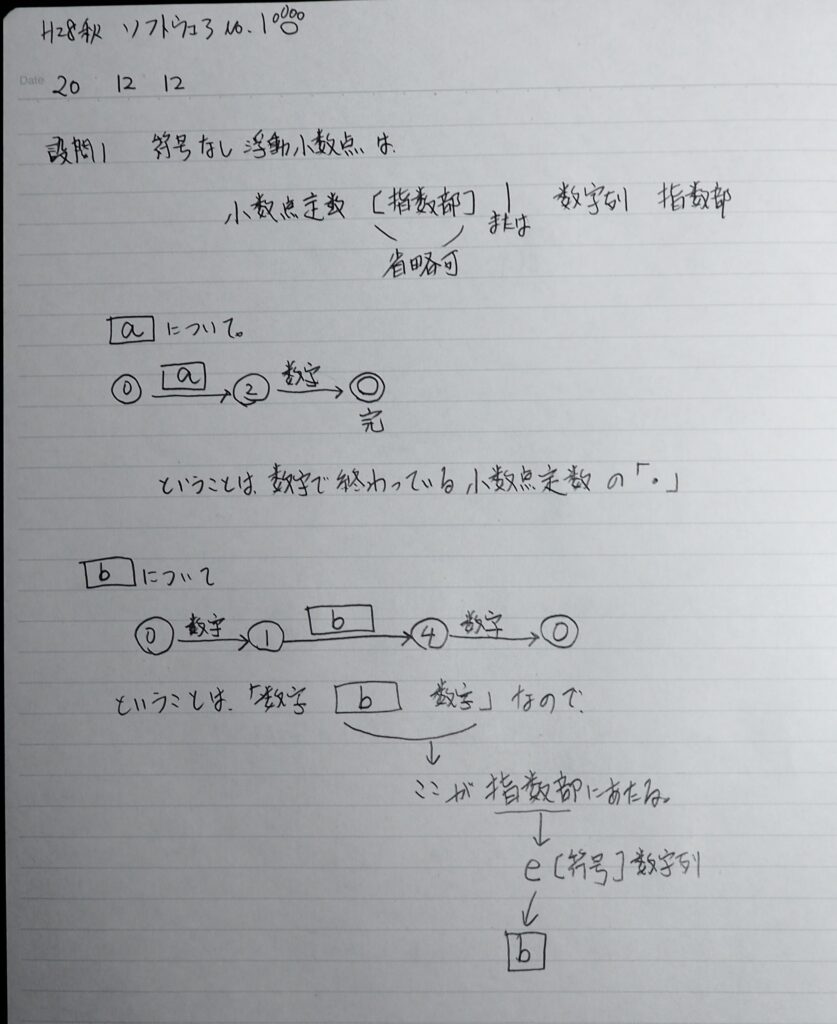 H28秋 ソフトウェア no.1
Date 20 12 12
設問1 符号なし浮動小数点は
小数点定数 [指数部] | 数字列 指数部
または
省略可
a について。
0 a 2 数字 ◎
完
ということは、数字で終わっている小数点定数の「・」
b について
0 数字 1 b 4 数字 0
ということは、「数字 b 数字」なので、
ここが指数部にあたる。
e [符号] 数字列
b